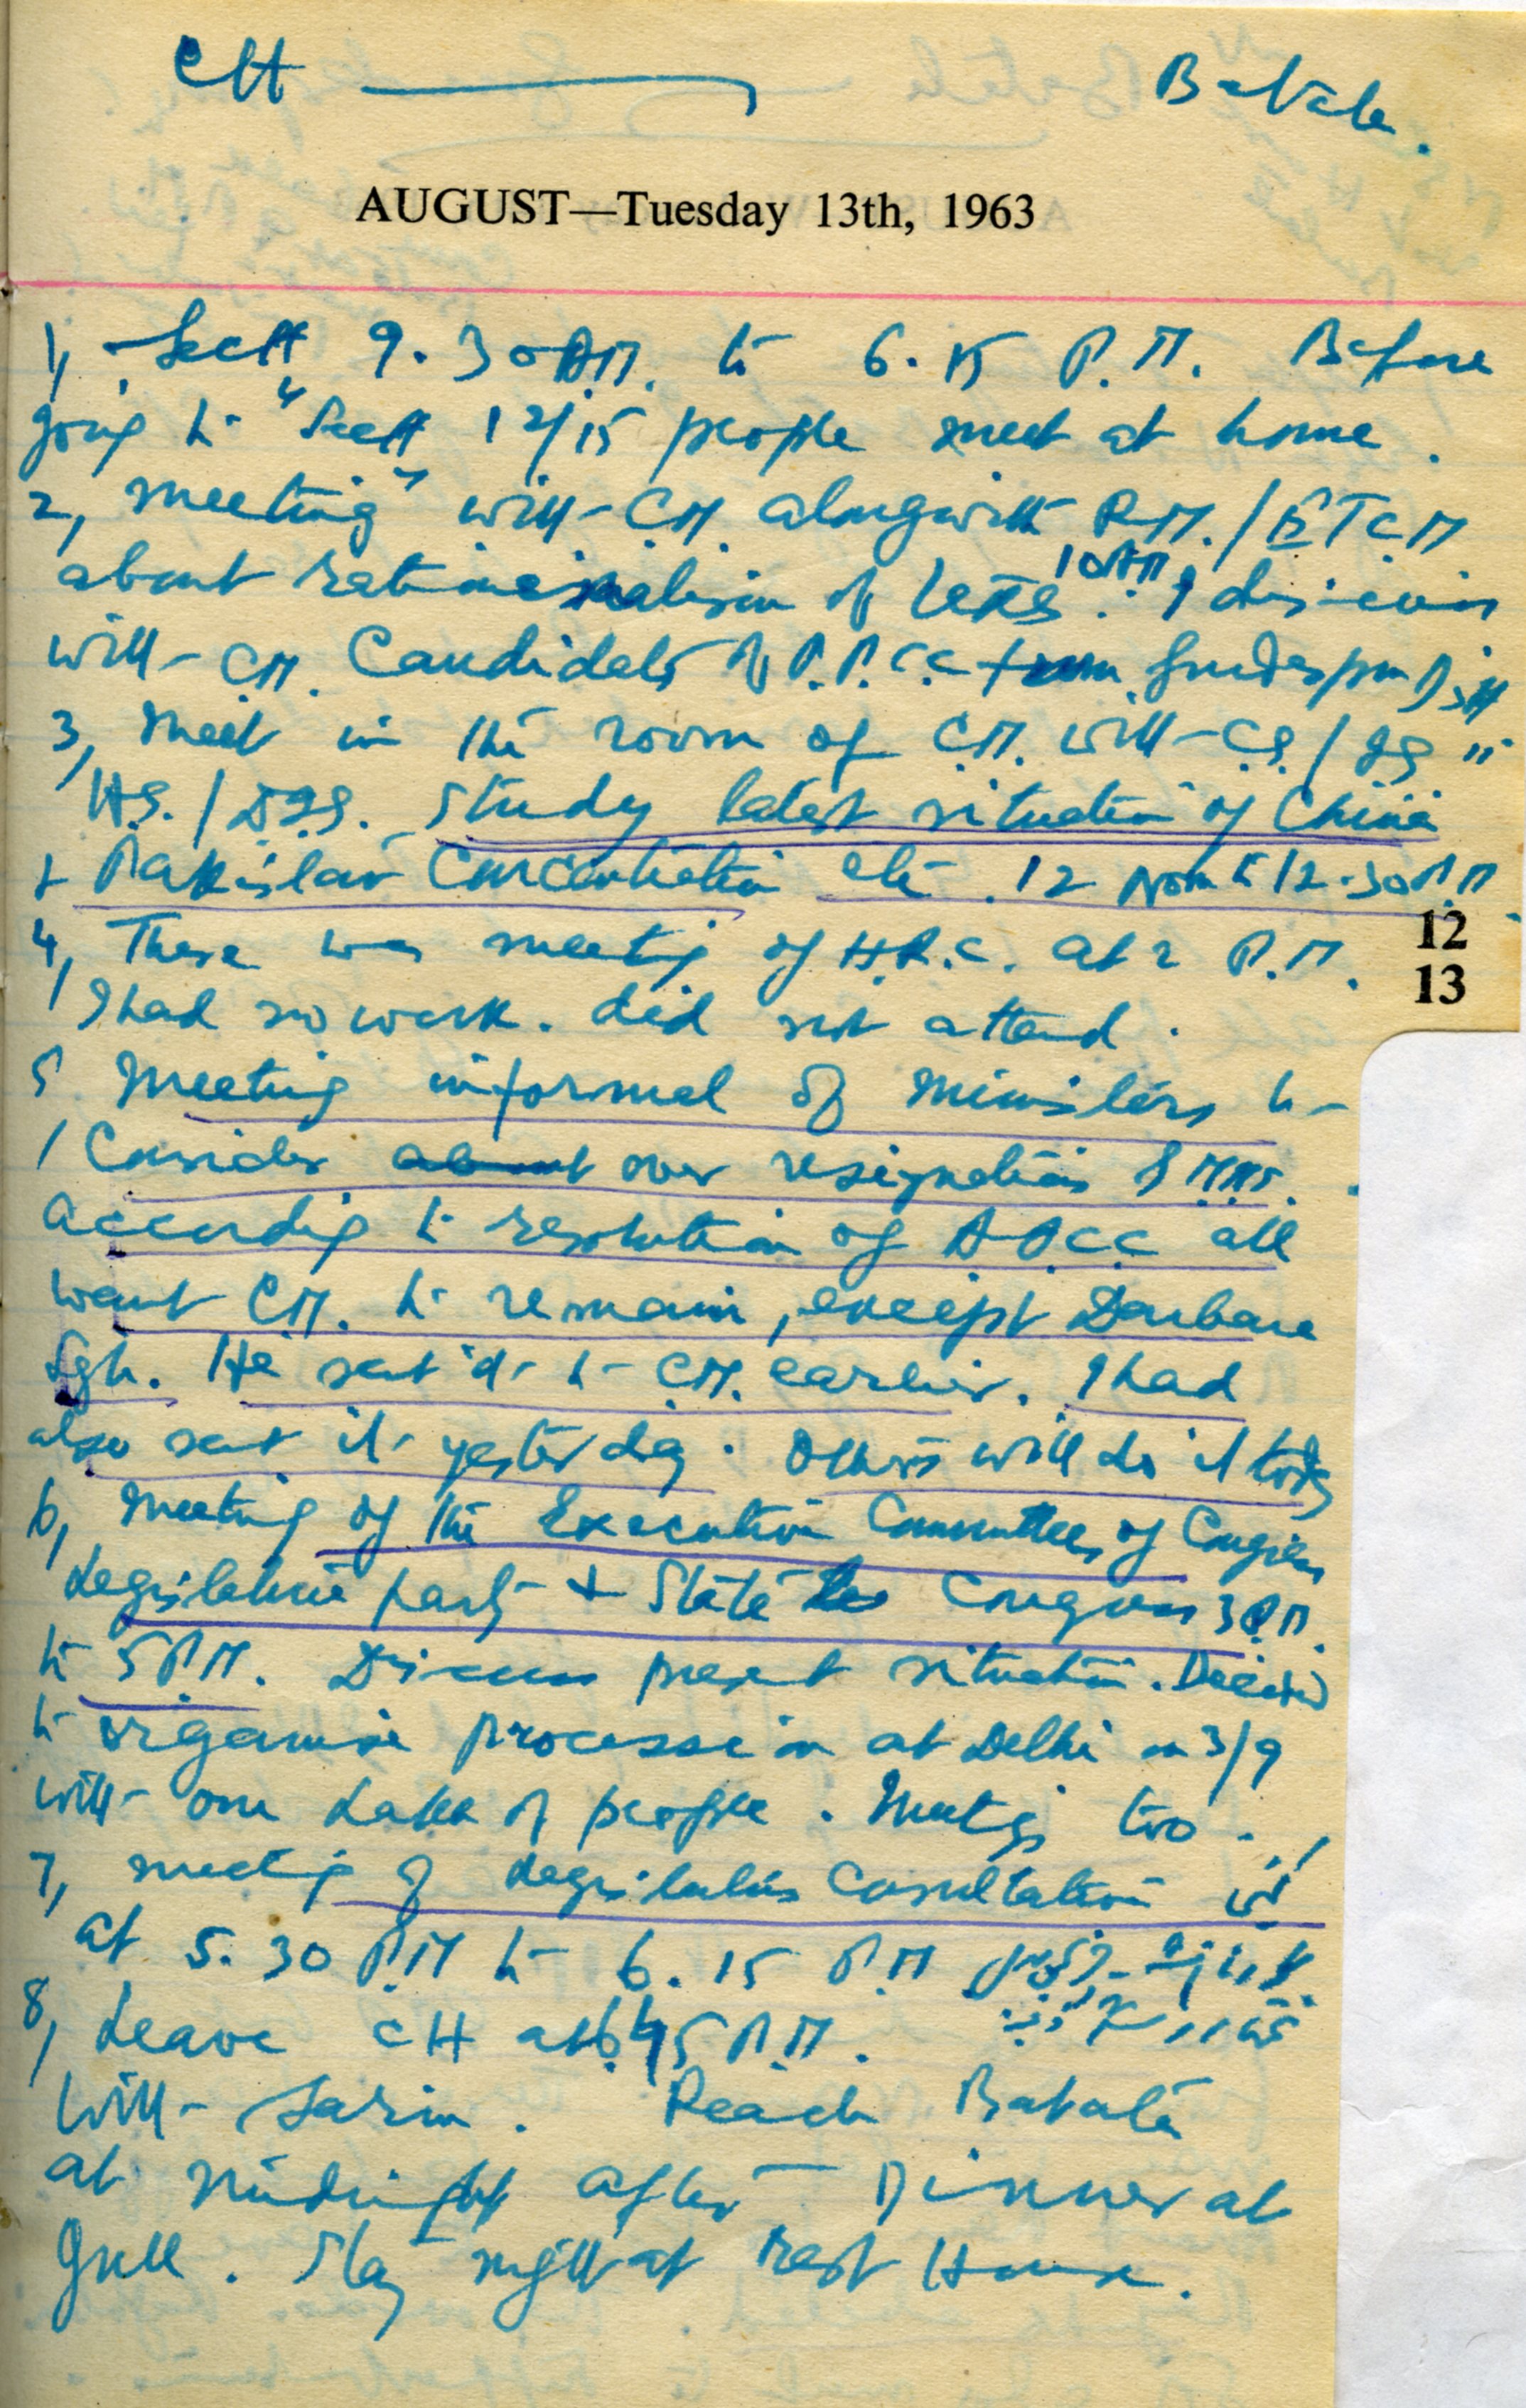 CH Batala.
AUGUST—Tuesday 13th, 1963
1, Sectt 9.30 AM. to 6.15 P.M. Before
going to "Sectt" 12/15 people meet at home.
2, Meeting with CM. alongwith R.M./ETCM
about of 10AM.
with CM. Candidates of P.P.C.C. from Gurdaspur Distt
3, Meet in the room of C.M. with CS/
HS./ Study latest situation of China
+ Pakistan Concentration etc. 12 Noon to 12.30 PM
4, There was meeting of at 2 P.M.
12
13
I had no work. did not attend.
5, Meeting informal of Ministers to
Consider about our resignations
according to resolution of all
want CM. to remain, except Darbara
Sgh. He sent it to CM. earlier. I had
also sent it yesterday. Others will do it today
6, Meeting of the Executive Committee of Congress
Legislature party + State Congress 3 P.M.
to 5 P.M. Discuss present situation. Decided
to organise procession at Delhi on 3/9
with one Lakh of people. Meetings too.
7, meeting of Legislative Consultation
at 5.30 P.M to 6.15 P.M
8, Leave CH at 6.45 P.M.
with Sarin. Reach Batala
at Midnight after Dinner at
Jull. Stay night at Rest House.